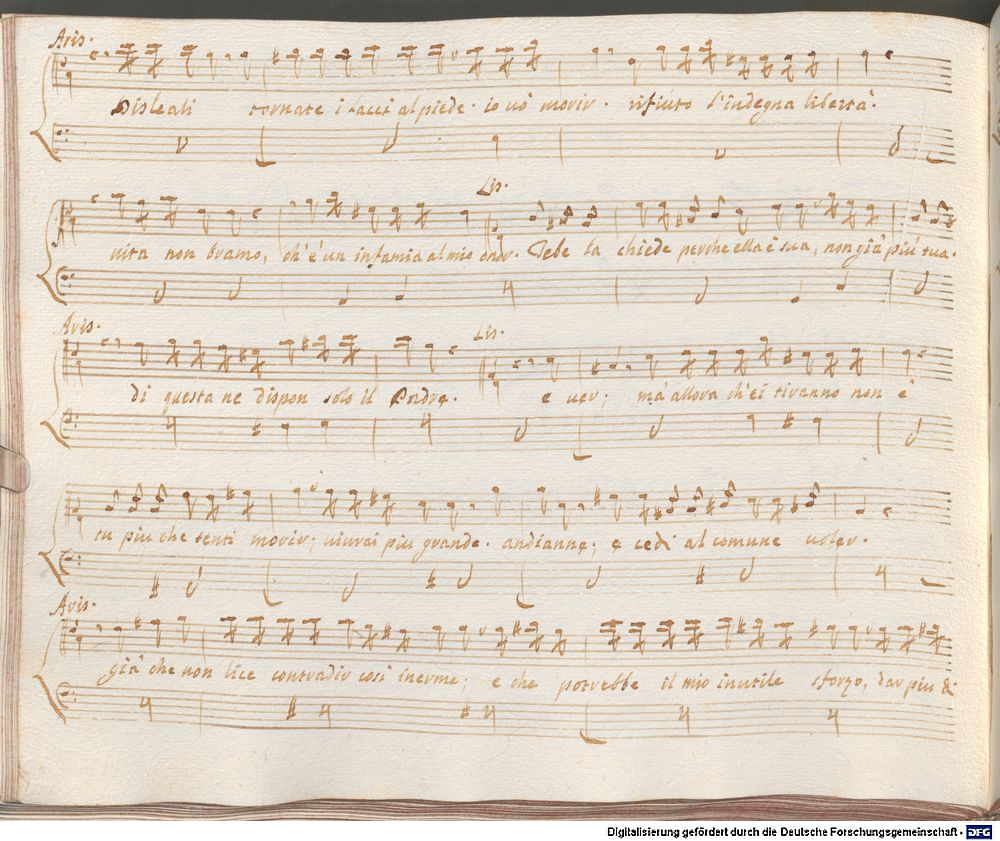 Aris.
Disleali tornate i lacci al piede. io uò morir. rifiuto l'indegna libertà.
Lis.
uita non bramo, ch'è un infamia al mio onor. Tebe la chiede perche ella è sua, non già più tua.
Aris. Lis.
di questa ne dispon solo il Padre. e uer; mà allora ch'ei tiranno non è
tu piu che tenti morir; uiurai piu grande. andianne; e cedi al comune uoler.
Aris.
già che non lice contradir così inerme; e che potrebbe il mio inutile sforzo, dar piu di
Digitalisierung gefördert durch die Deutsche Forschungsgemeinschaft - DFG